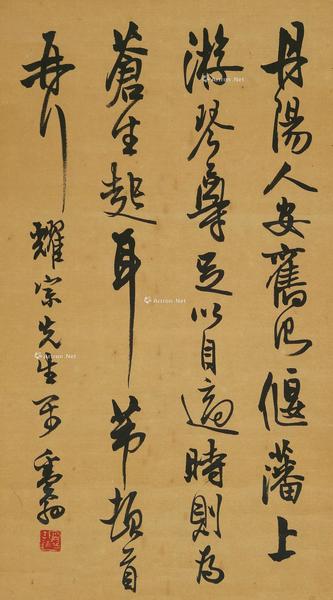 丹陽人安舊況偃藩上
游琴尊足以自適時則為
蒼生起耳 芾頓首
再行 耀宗先生 翁
Artron.Net